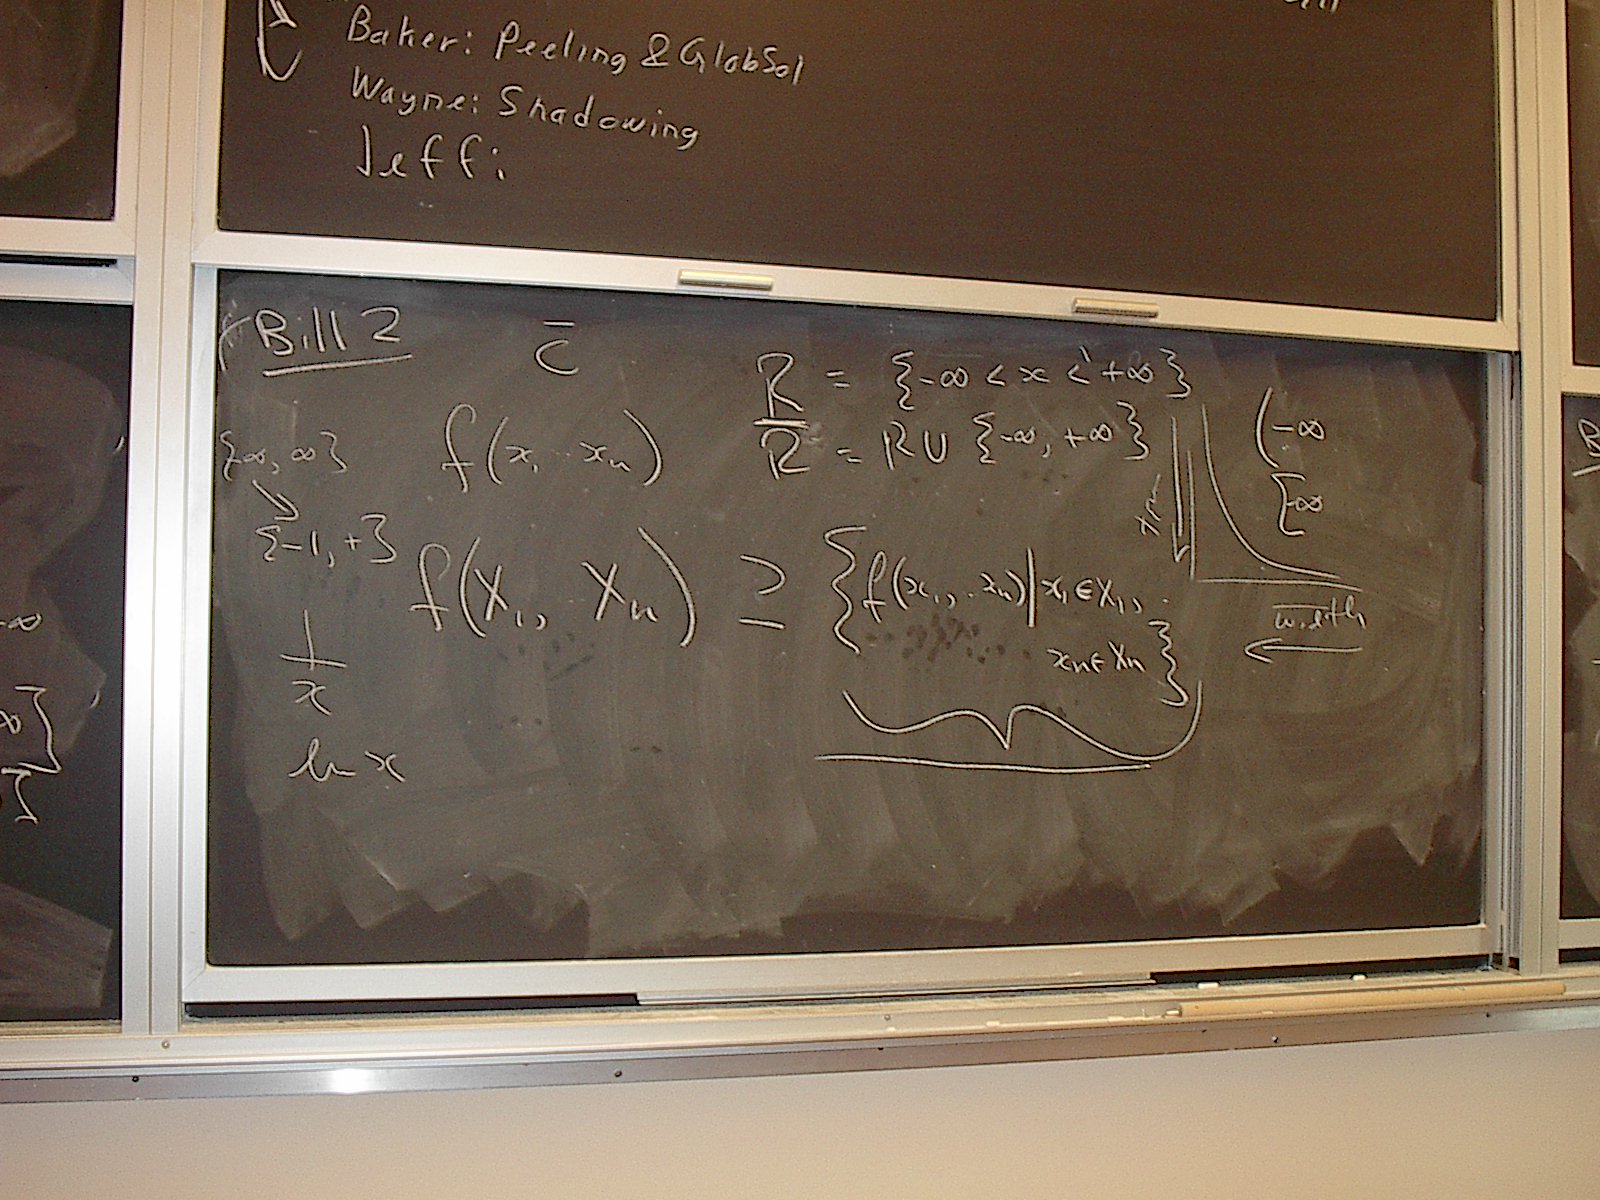 Baker: Peeling & GlobSol
Wayne: Shadowing
Jeff:
Bill 2
c̅
R = {-∞ < x < +∞}
R̅ = R ∪ {-∞, +∞}
(-∞
[-∞
{-∞, ∞}
f(x, .. xn)
{-1, +}
f(X1, Xn) ⊇ {f(x1, .. xn) | x1 ∈ X1, .
xn ∈ Xn}
width
1/x
ln x